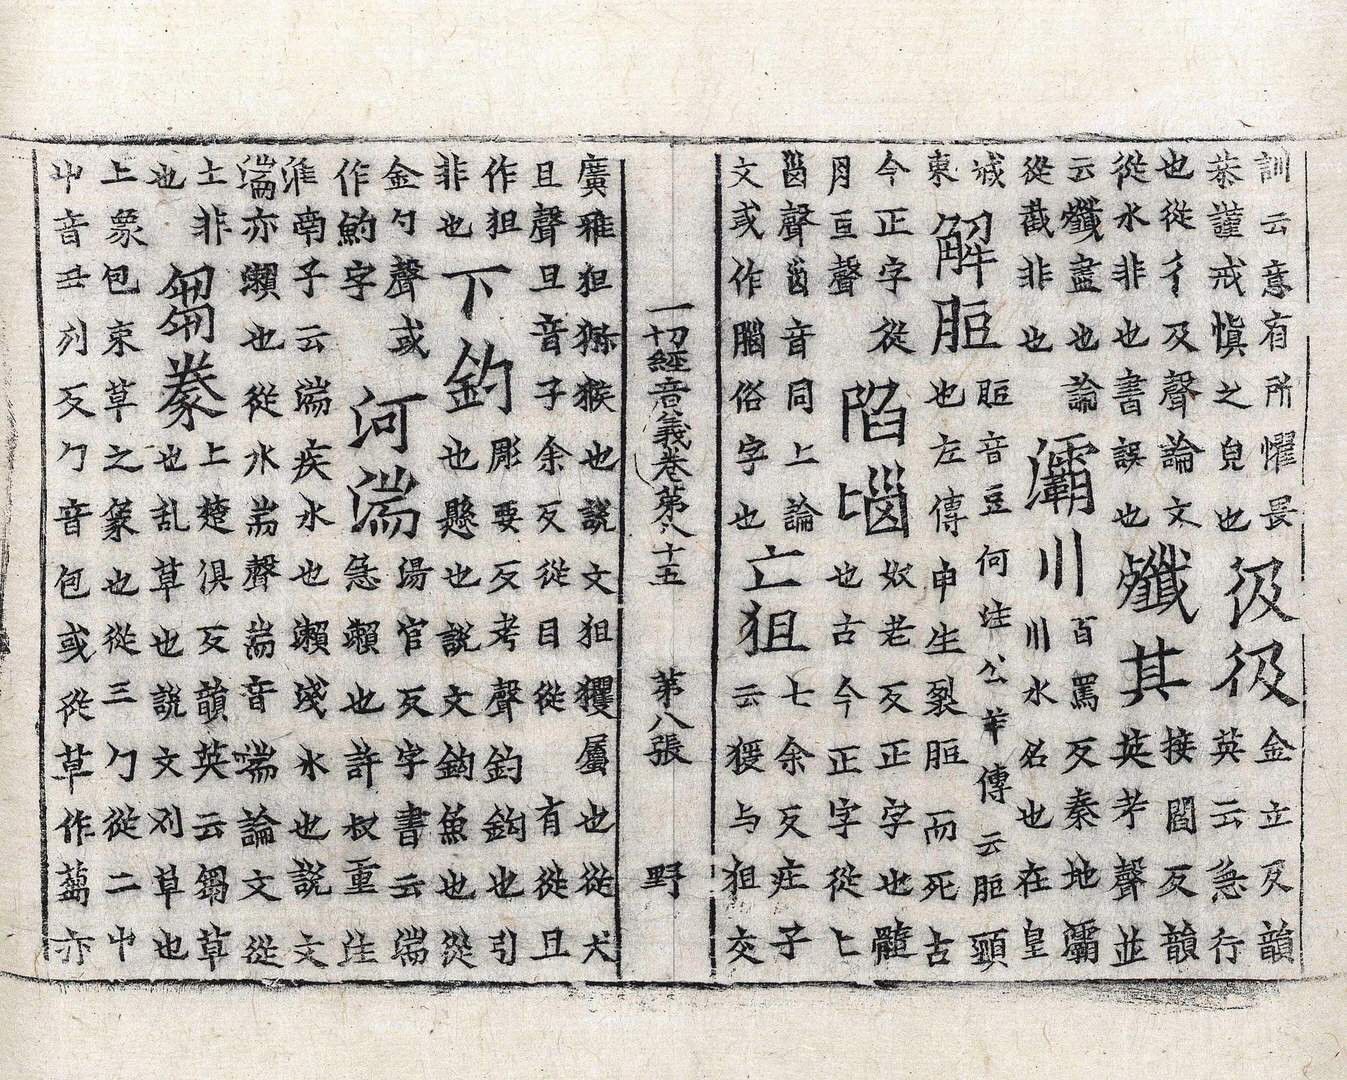 訓云意有所懼畏
恭謹戒慎之皃也
彶彶
金立反韻
英云急行
也從彳及聲論文
從水非也書誤也
殲其
接閻反韻
英考聲並
云殲盡也論
從截非也
灞川
百罵反秦地灞
川水名也在皇
城
東
解脰
脰音豆何注公羊傳云脰頸
也左傳申生裂脰而死古
今正字從
月豆聲
陷𡿺
奴老反正字也髓
也古今正字從匕
𡿺聲𡿺音同上論
文或作腦俗字也
亡狙
七余反莊子
云猨与狙交
一切經音義卷第八十五 第八張 野
廣雅狙獼猴也說文狙玃屬也從犬
且聲且音子余反從目從 有從旦
作狙
非也
下釣
彫要反考聲釣鈎也引
也懸也說文鈎魚也從
金勺聲或
作魡字
河湍
湯官反字書云湍
急瀨也許叔重注
淮南子云湍疾水也瀨淺水也說文
湍亦瀨也從水耑聲耑音端論文從
土非
也
芻豢
上楚俱反韻英云芻草
也乱草也說文刈草也
上象包束草之篆也從三勹從二屮
屮音丑列反勹音包或從草作蒭亦